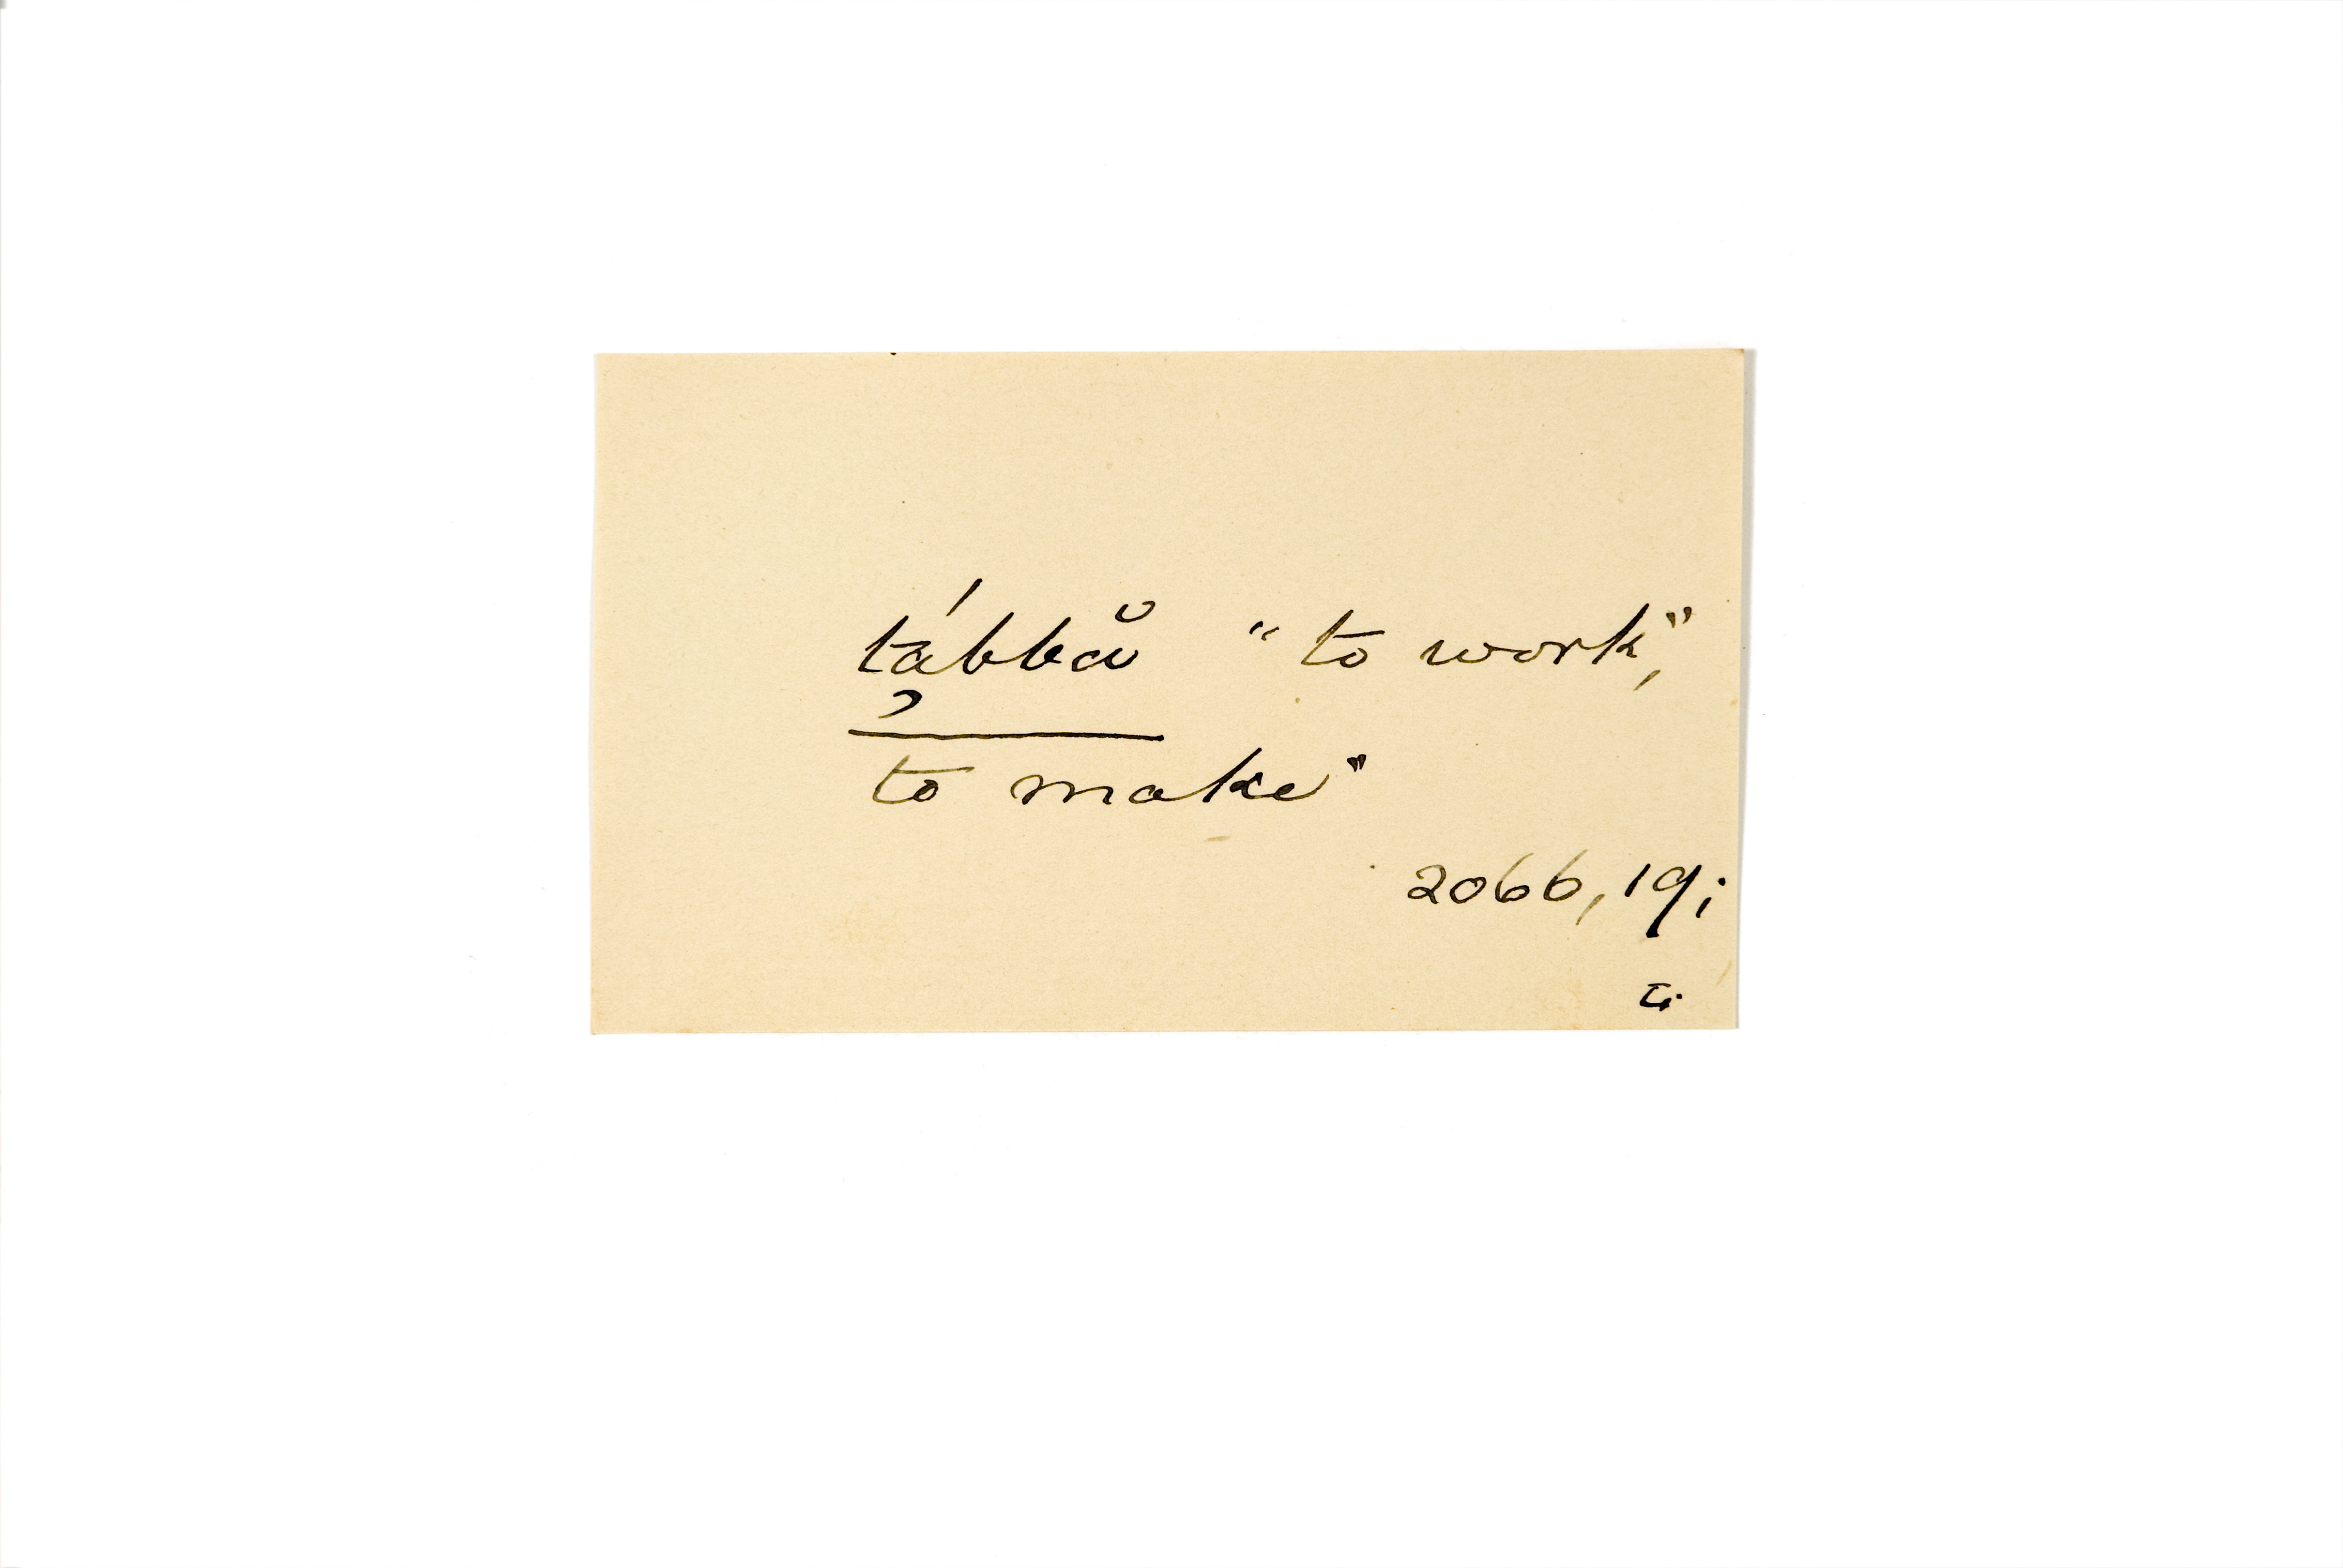 tá̦bbă “to work,”
to make”
2066, 19;